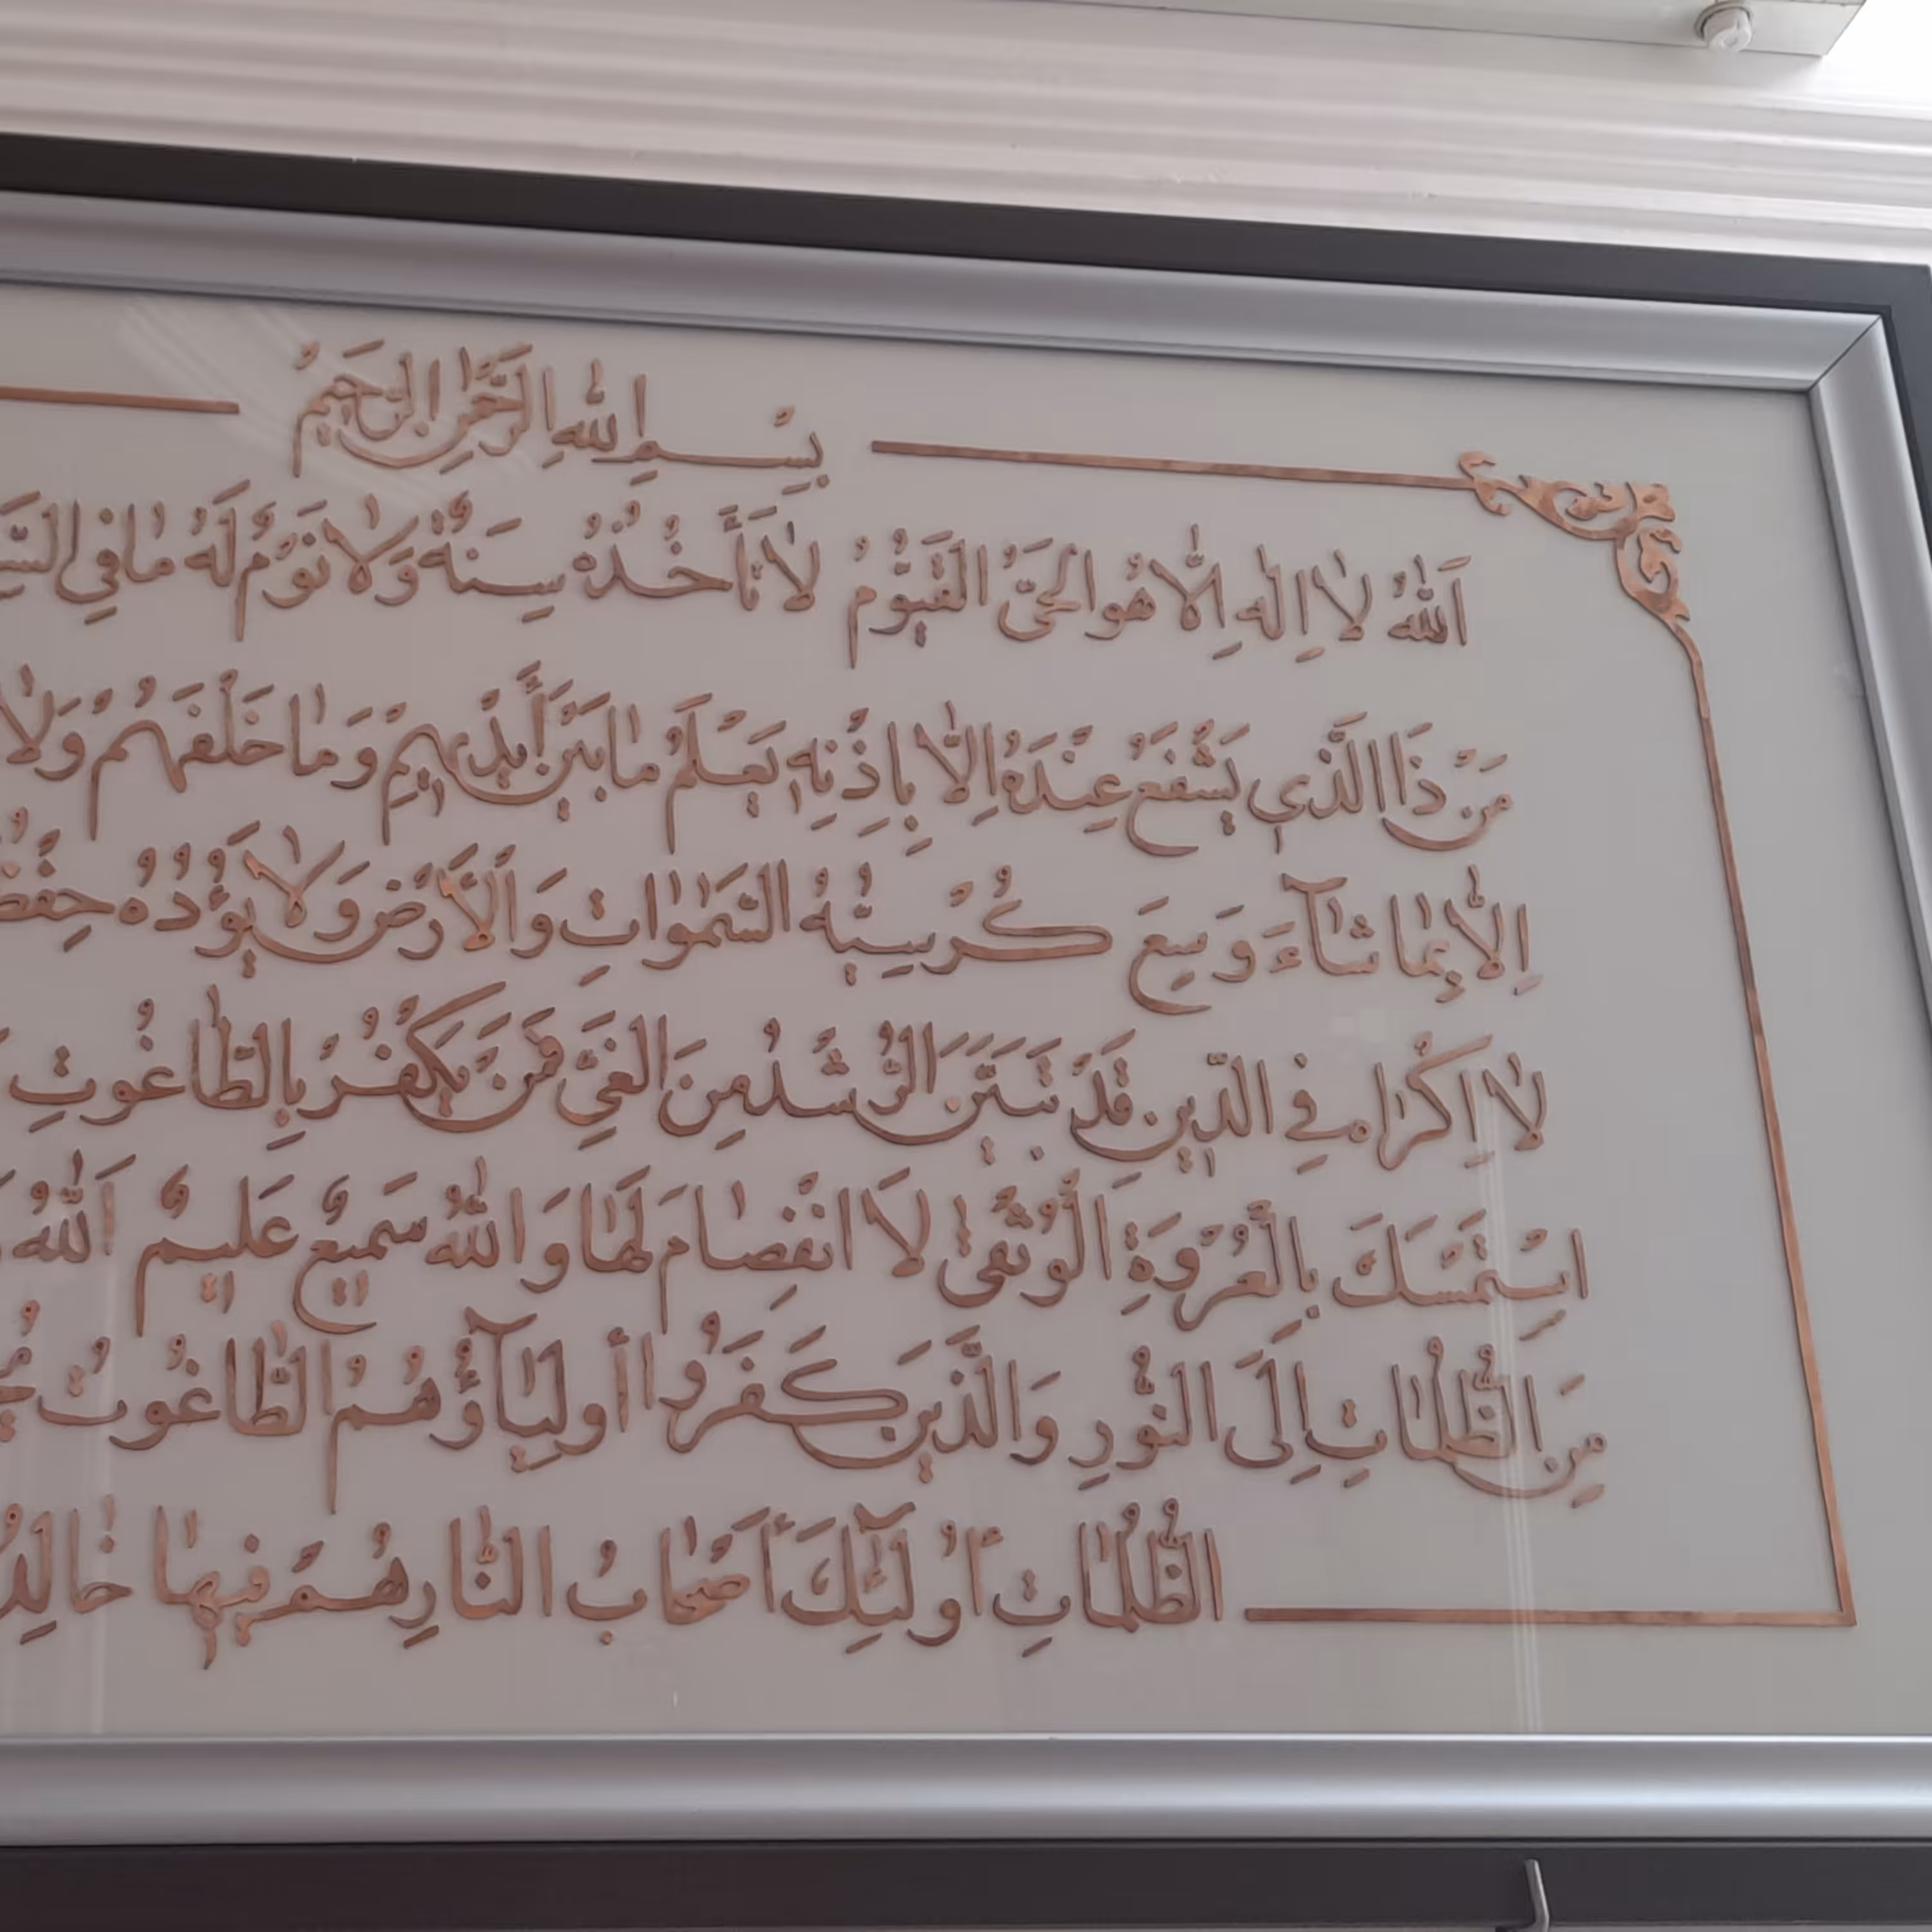 بِسْمِ اللهِ الرَّحْمٰنِ الرَّحِيمُ
اَللهُ لاٰ اِلٰهَ اِلّاٰ هُوَ الْحَىُّ الْقَيُّومُ لاٰ تَأَخُذُهُ سِنَةٌ وَلاٰ نَوْمٌ لَهُ مٰا فِي
مَنْ ذَا الَّذي يَشْفَعُ عِنْدَهُ اِلاّٰ بِاِذْنِهِ يَعْلَمُ مٰا بَيْنَ أَيْدْيهِمْ وَ مٰا خَلْفَهُمْ وَلاٰ
اِلاّٰ بِمٰا شٰآءَ وَسِعَ كُرْسِيُّهُ السَّمٰوٰاتِ وَ الْأَرْضَ وَ لاٰ يَؤُدُهُ
لاٰ اِكْرٰاه فِي الدّينِ قَدْ تَبَيَّنَ الرُّشْدُ مِنَ الْغَيِّ فَمَنْ يَكْفُرْ بِالطّٰاغُوتِ
اسْتَمْسَكَ بِالْعُرْوَةِ الْوُثْقىٰ لاَ انْفِصٰامَ لَهٰا وَ اللهُ سَميعٌ عَليمٌ اَللهُ
مِنَ الظُّلُمٰاتِ اِلَى النُّورِ وَ الَّذينَ كَفَرُوا أَولِيٰآؤُهُمْ الطّٰاغُوتُ
الظُّلُمٰاتِ أُولٰئِكَ أَصْحٰابُ النّٰارِ هُمْ فيهٰا